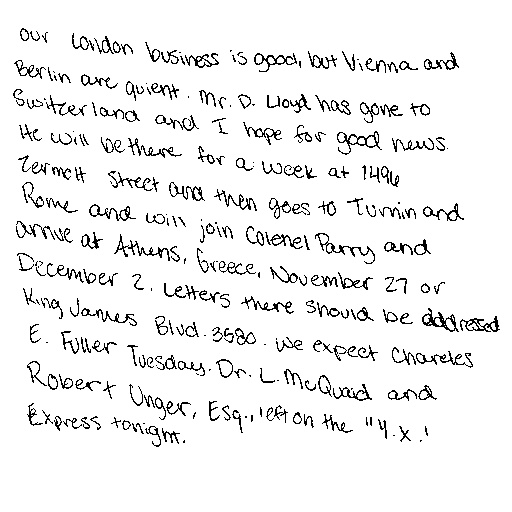 our London business is good, but Vienna and
Berlin are quient. Mr. D. Lloyd has gone to
Switzerland and I hope for good news.
He will be there for a week at 1496
Zermott Street and then goes to Turnin and
Rome and will join Colenel Parry and
arrive at Athens, Greece, November 27 or
December 2. Letters there should be addressed
King James Blvd. 3580. We expect Chareles
E. Fuller Tuesday. Dr. L. McQuaid and
Robert Unger, Esq., left on the "Y.X."
Express tonight.